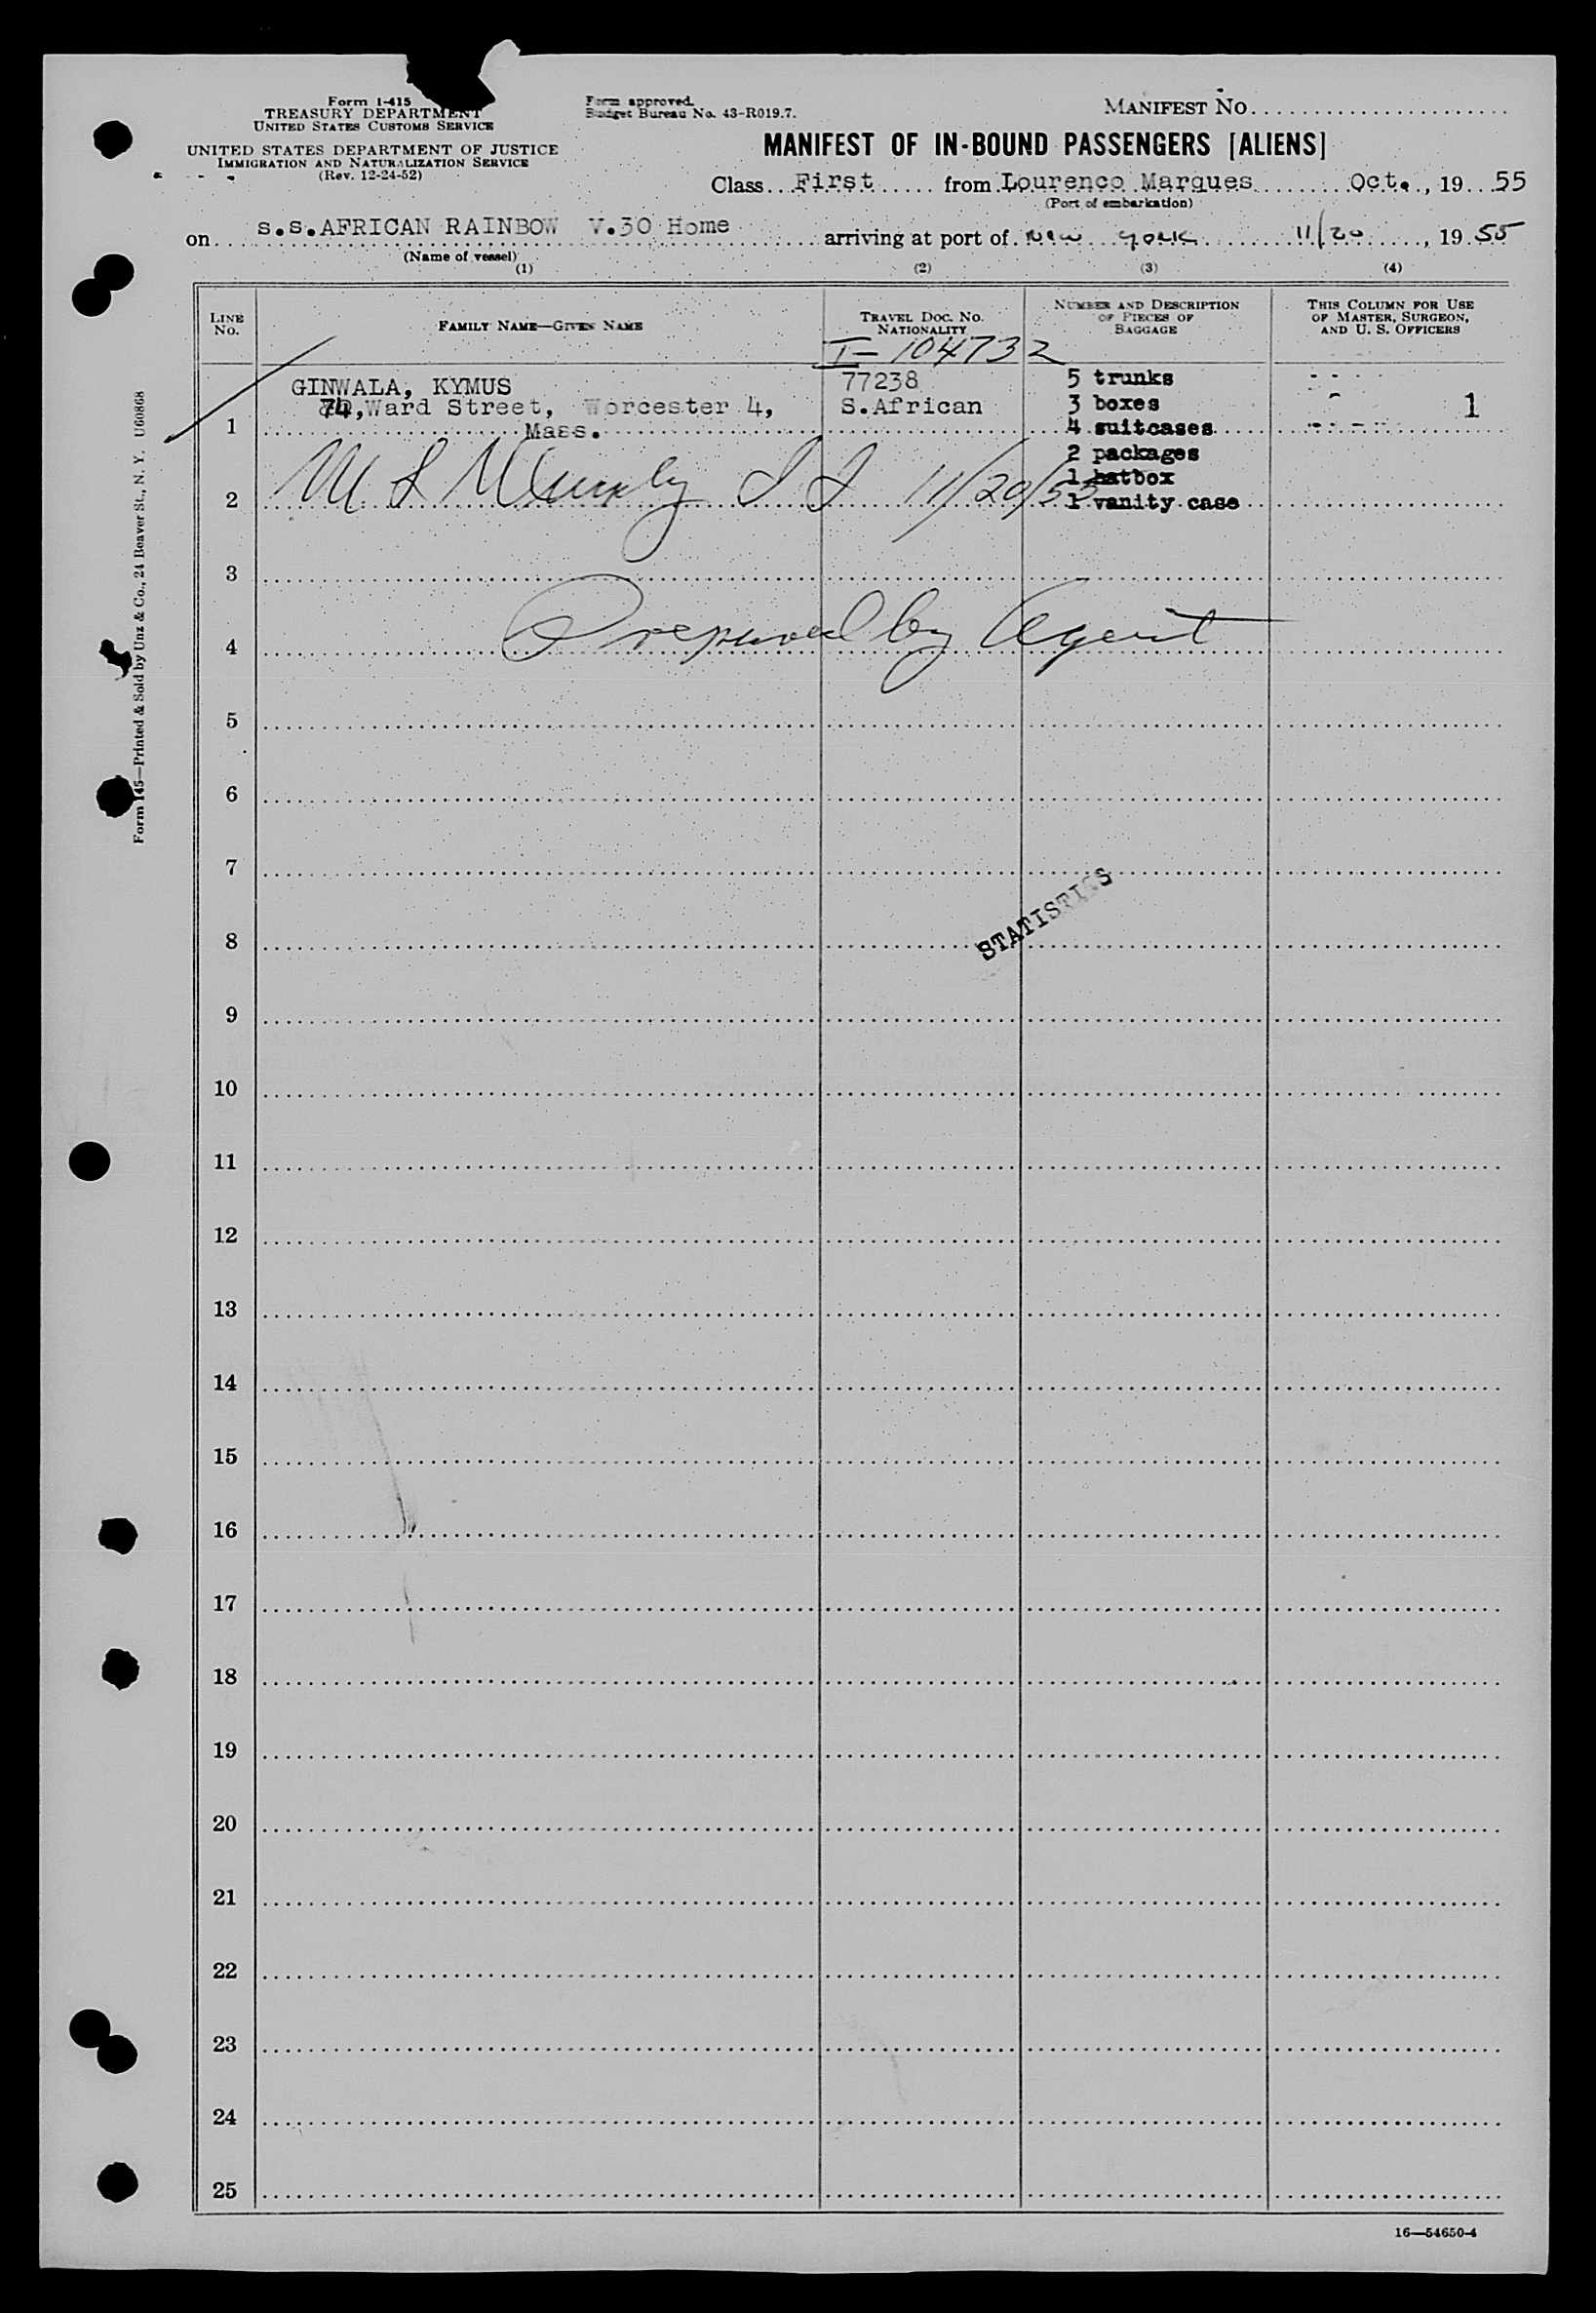 Form I-415
TREASURY DEPARTMENT
UNITED STATES CUSTOMS SERVICE
UNITED STATES DEPARTMENT OF JUSTICE
IMMIGRATION AND NATURALIZATION SERVICE
(Rev. 12-24-52)
Form approved.
Budget Bureau No. 43-R019.7.
MANIFEST NO.
MANIFEST OF IN-BOUND PASSENGERS [ALIENS]
Class First from Lourenco Marques Oct., 19 55
(Port of embarkation)
on s.s.AFRICAN RAINBOW V.30 Home arriving at port of New York 11/20, 19 55
(Name of vessel)
(1) (2) (3) (4)
LINE NO.
FAMILY NAME—GIVEN NAME
TRAVEL DOC. NO. NATIONALITY
NUMBER AND DESCRIPTION OF PIECES OF BAGGAGE
THIS COLUMN FOR USE OF MASTER, SURGEON, AND U. S. OFFICERS
I-104732
GINWALA, KYMUS 77238 5 trunks
74, Ward Street, Worcester 4, S.African 3 boxes 1
1 Mass. 4 suitcases
2 packages
1 hatbox
2 M. L. 11/20/55 1 vanity case
3
4 Prepared by Agent
5
6
7
8 STATISTICS
9
10
11
12
13
14
15
16
17
18
19
20
21
22
23
24
25
16—54650-4
Form 145—Printed & Sold by Unz & Co., 24 Beaver St., N. Y. U60868